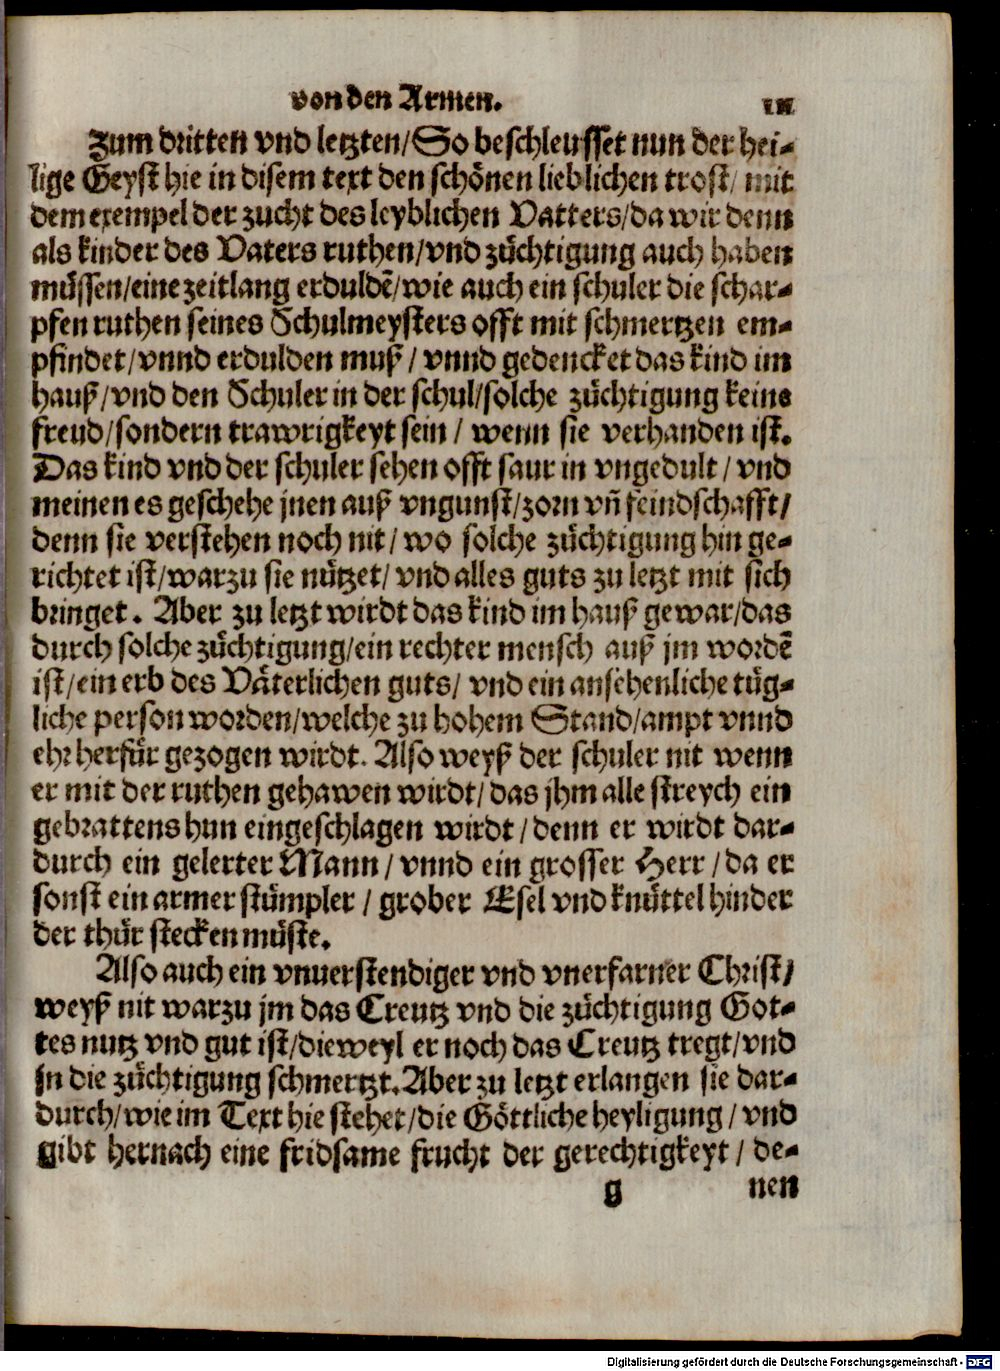 von den Armen.
Zum dritten vnd letzten/So beschleusset nun der hei-
lige Geyst hie in disem text den schönen lieblichen trost/ mit
dem exempel der zucht des leyblichen Vatters/da wir denn
als kinder des Vaters ruthen/vnd züchtigung auch haben
müssen/eine zeitlang erduldē/wie auch ein schuler die schar-
pfen ruthen seines Schulmeysters offt mit schmertzen em-
pfindet/vnnd erdulden muß/ vnnd gedencket das kind im
hauß/vnd den Schuler in der schul/solche züchtigung keine
freud/sondern trawrigkeyt sein/ wenn sie verhanden ist.
Das kind vnd der schuler sehen offt saur in vngedult/ vnd
meinen es geschehe jnen auß vngunst/zorn vñ feindschafft/
denn sie verstehen noch nit/ wo solche züchtigung hin ge-
richtet ist/warzu sie nützet/ vnd alles guts zu letzt mit sich
bringet. Aber zu letzt wirdt das kind im hauß gewar/das
durch solche züchtigung/ein rechter mensch auß jm wordē
ist/ein erb des Väterlichen guts/ vnd ein ansehenliche tüg-
liche person worden/welche zu hohem Stand/ampt vnnd
ehr herfür gezogen wirdt. Also weyß der schuler nit wenn
er mit der ruthen gehawen wirdt/das jhm alle streych ein
gebrattens hun eingeschlagen wirdt/denn er wirdt dar-
durch ein gelerter Mann/vnnd ein grosser Herr/da er
sonst ein armer stümpler/ grober Esel vnd knüttel hinder
der thür stecken müste.
Also auch ein vnuerstendiger vnd vnerfarner Christ/
weyß nit warzu jm das Creutz vnd die züchtigung Got-
tes nutz vnd gut ist/dieweyl er noch das Creutz tregt/vnd
jn die züchtigung schmertzt. Aber zu letzt erlangen sie dar-
durch/wie im Text hie stehet/die Göttliche heyligung/ vnd
gibt hernach eine fridsame frucht der gerechtigkeyt/ de-
g nen
Digitalisierung gefördert durch die Deutsche Forschungsgemeinschaft - DFG